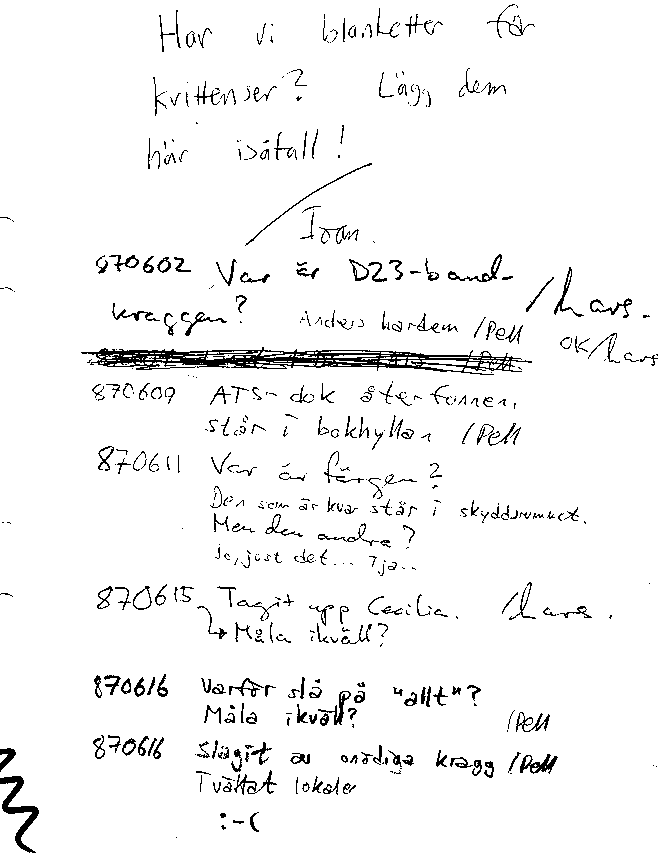 Har vi blanketter för
kvittenser? Lägg dem
här isåfall!
870602 Var är D23-band-
kraggen? Anders har dem /Pell /Lars.
OK/Lars
870609 ATS-dok återfunnen,
står i bokhyllan /Pell
870611 Var är färgen?
Den som är kvar står i skyddsrummet.
Men den andra?
Jo, just det... Tja..
870615 Tagit upp Cecilia. /Lars.
↳ Måla ikväll?
870616 Varför slå på "allt"?
Måla ikväll? /Pell
870616 Slagit av onödiga kragg /Pell
Tvättat lokaler
:-(